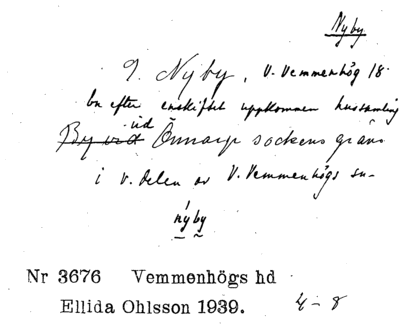 Nyby
9. Nyby, V. Vemmenhög 18.
En efter enskiftet uppkommen hussamling
By vid vid Önnarp sockens gräns
i v. delen av V. Vemmenhögs sn.
nýby
Nr 3676 Vemmenhögs hd
Ellida Ohlsson 1939. 4-8